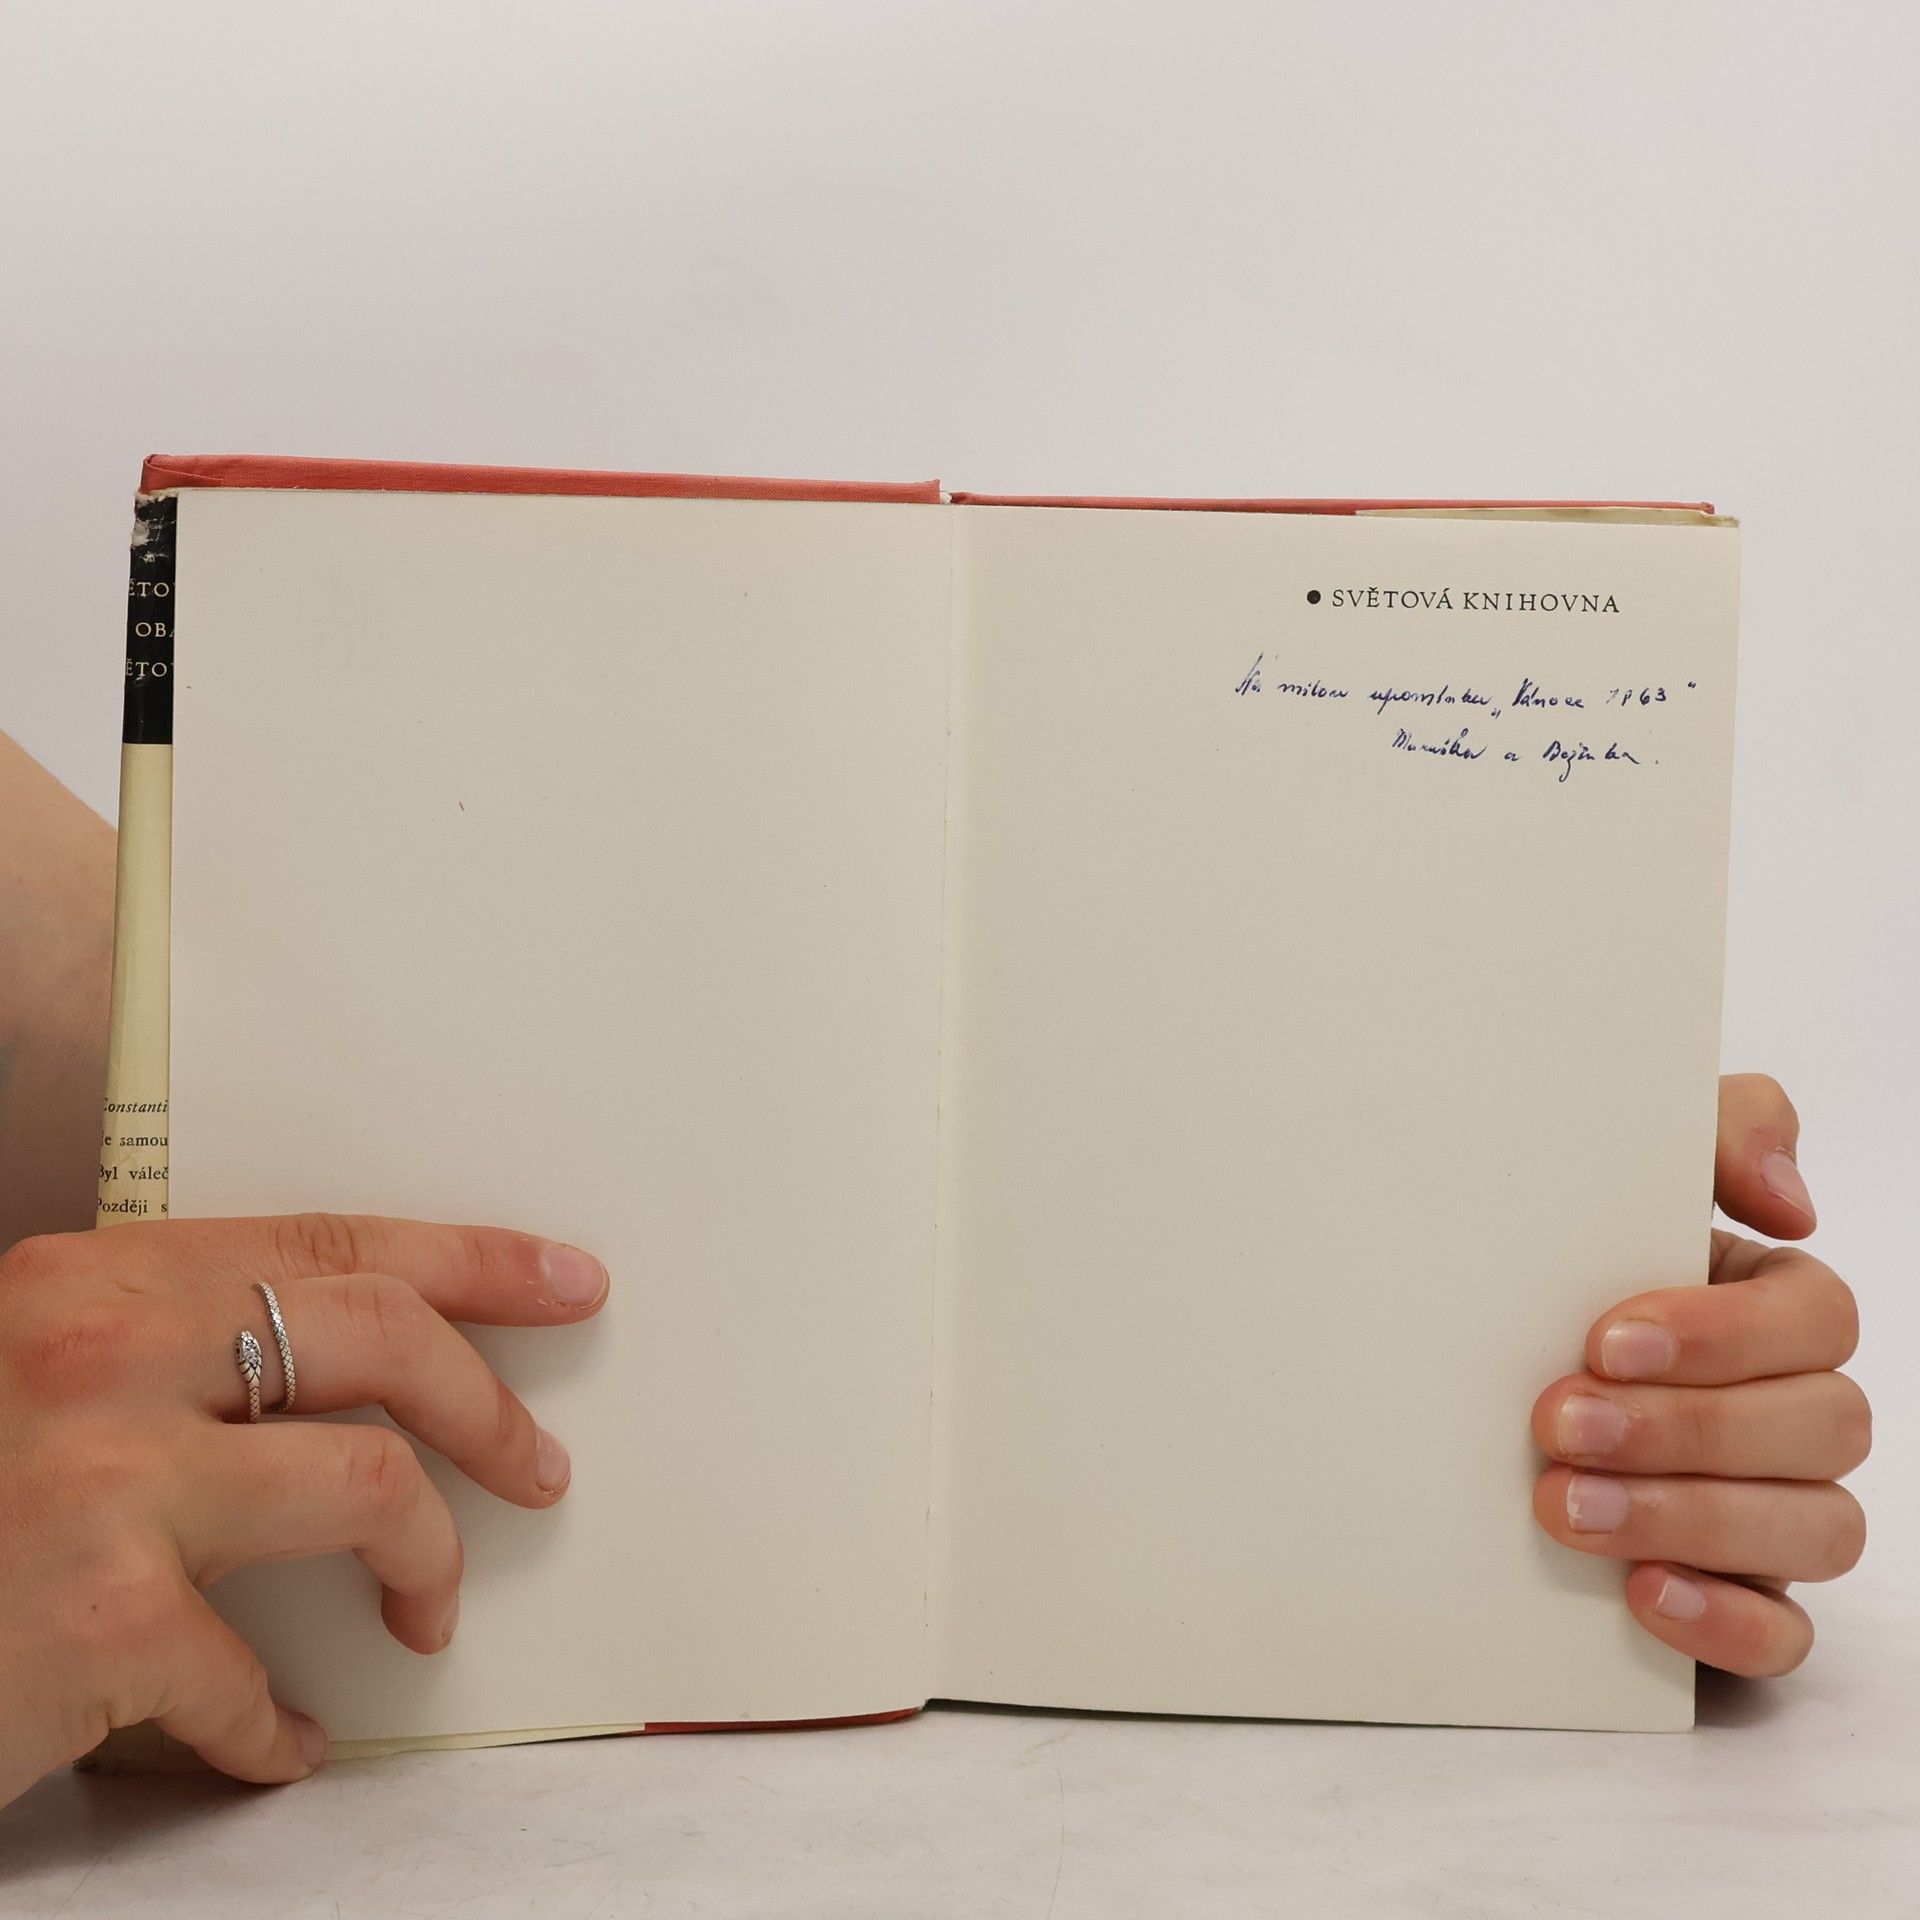 ĚTO
OBA
ĚTO
● SVĚTOVÁ KNIHOVNA
Na milou upomínku „Vánoce 1963“
Maruška a Boženka.
Constanti
e samou
Byl váleč
Později s